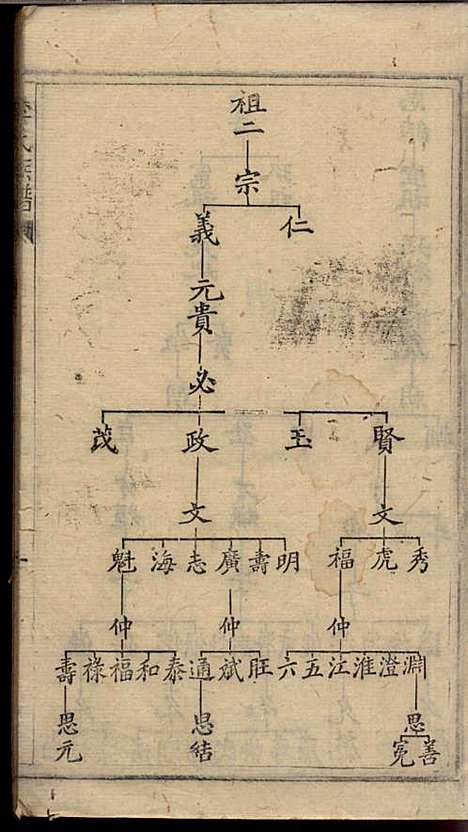 祖二
宗
仁 義
元貴
必
賢 玉 政 茂
文 文
秀 虎 福 明 壽 廣 志 海 魁
仲 仲 仲
淵 澄 淮 江 五 六 旺 斌 通 泰 和 福 祿 壽
思 思結 思元
善 冕
氏族譜